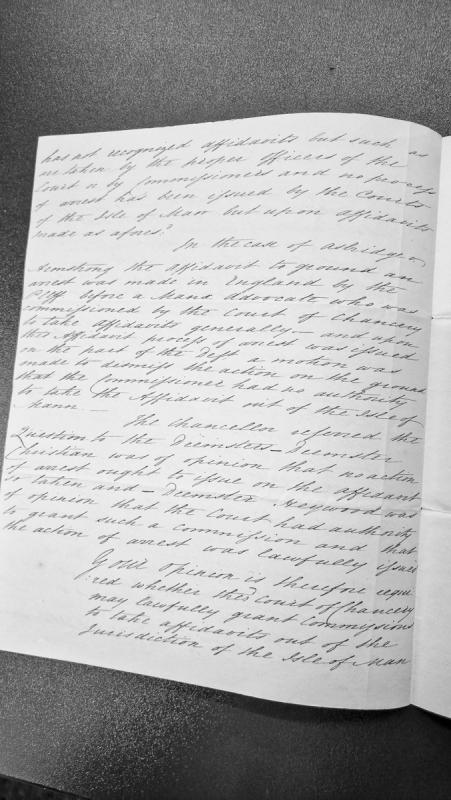 has not recognized affidavits but such as
are taken by the proper officers of the
Court or by Commissioners and no process
of arrest has been issued by the Courts
of the Isle of Man but upon affidavits
made as afores.d
In the case of
Armstrong the affidavit to ground an
arrest was made in England by the
Pltff before a Manx advocate who was
commissioned by the Court of Chancery
to take affidavits generally – and upon
this Affidavit process of arrest was issued
on the part of the Deft a motion was
made to dismiss the action on the ground
that the Commissioner had no authority
to take the Affidavit out of the Isle of
Mann –
The Chancellor referred the
Question to the Deemsters – Deemster
Christian was of opinion that no action
of arrest ought to issue on the affidavit
so taken and – Deemster Heywood was
of opinion that the Court had authority
to grant such a commission and that
the action of arrest was lawfully issued
Your opinion is therefore requi
red whether the Court of Chancery
may lawfully grant Commissions
to take affidavits out of the
Jurisdiction of the Isle of Man